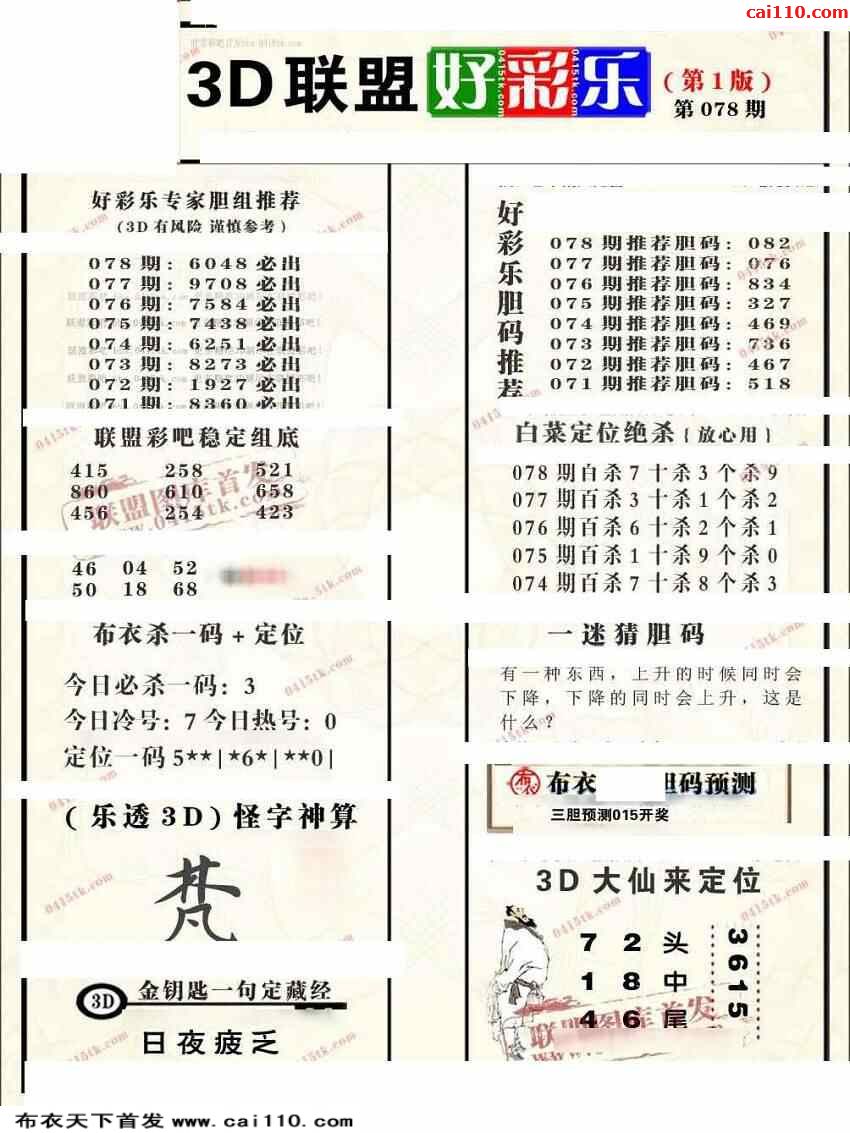 cai110.com
3D联盟好彩乐
(第1版)
第078期
好彩乐专家胆组推荐
(3D有风险 谨慎参考)
078期: 6048必出
077期: 9708必出
076期: 7584必出
075期: 7438必出
074期: 6251必出
073期: 8273必出
072期: 1927必出
071期: 8360必出
联盟彩吧稳定组底
415 258 521
860 610 658
456 254 423
46 04 52
50 18 68
布衣杀一码+定位
今日必杀一码: 3
今日冷号: 7 今日热号: 0
定位一码 5**|*6*|**0|
(乐透3D)怪字神算
梵
3D 金钥匙一句定藏经
日夜疲乏
好彩乐胆码推荐
078期推荐胆码: 082
077期推荐胆码: 076
076期推荐胆码: 834
075期推荐胆码: 327
074期推荐胆码: 469
073期推荐胆码: 736
072期推荐胆码: 467
071期推荐胆码: 518
白菜定位绝杀{放心用}
078期百杀7十杀3个杀9
077期百杀3十杀1个杀2
076期百杀6十杀2个杀1
075期百杀1十杀9个杀0
074期百杀7十杀8个杀3
一迷猜胆码
有一种东西，上升的时候同时会
下降，下降的同时会上升，这是
什么?
布衣 布衣 胆码预测
三胆预测015开奖
3D大仙来定位
7 2 头
1 8 中
4 6 尾
3615
联盟图库首发
www.0415tk.com
布衣天下首发 www.cai110.com